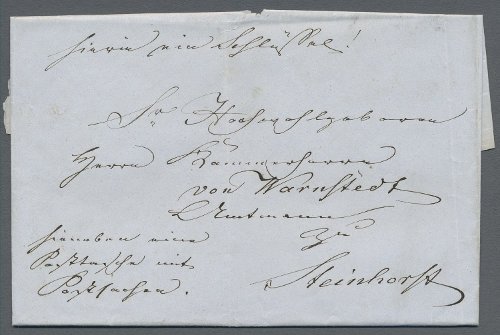 hierin ein Schlüssel!
Sr Hochwohlgeboren
Herrn Kammerherrn
von Warnstedt
Amtmann
zu
Steinhorst
hieneben eine
Posttasche mit
Postsachen.